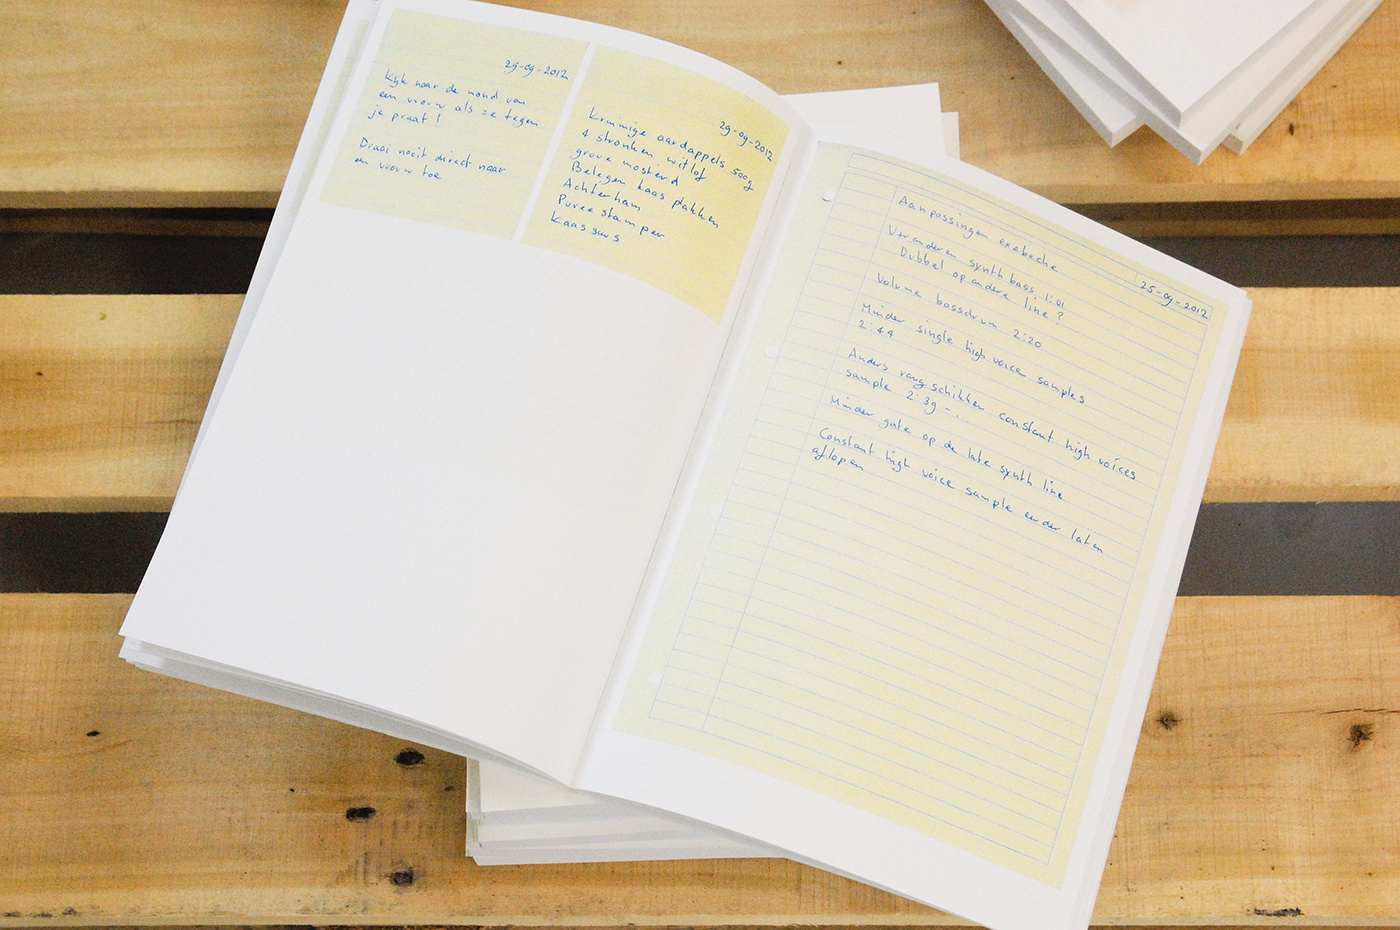 29-09-2012
Kijk naar de mond van
een vrouw als ze tegen
je praat!
Draai nooit direct naar
een vrouw toe
29-09-2012
Kruimige aardappels 500g
4 stronken witlof
grove mosterd
Belegen kaas plakken
Achterham
Puree stamper
Kaas saus
25-09-2012
Aanpassingen
Veranderen synth bass 1:01
Dubbel op andere line?
Volume bassdrum 2:20
Minder single high voice samples
2:44
Anders rangschikken constant high voices
sample 2:39 - ...
Minder gate op de late synth line
Constant high voice sample eerder laten
aflopen